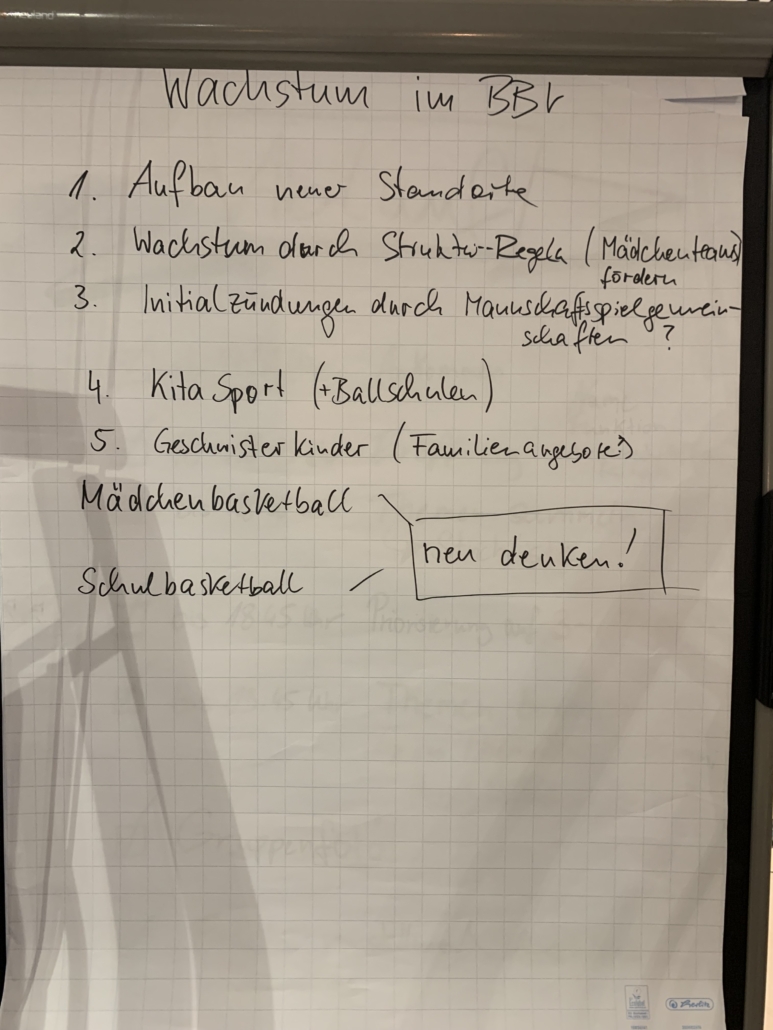 Wachstum im BBV
1. Aufbau neuer Standorte
2. Wachstum durch Struktur-Regeln (Mädchenteams)
fördern
3. Initialzündungen durch Mannschaftsspielgemein-
schaften ?
4. Kita Sport (+Ballschulen)
5. Geschwisterkinder (Familienangebote?)
Mädchenbasketball
neu denken!
Schulbasketball